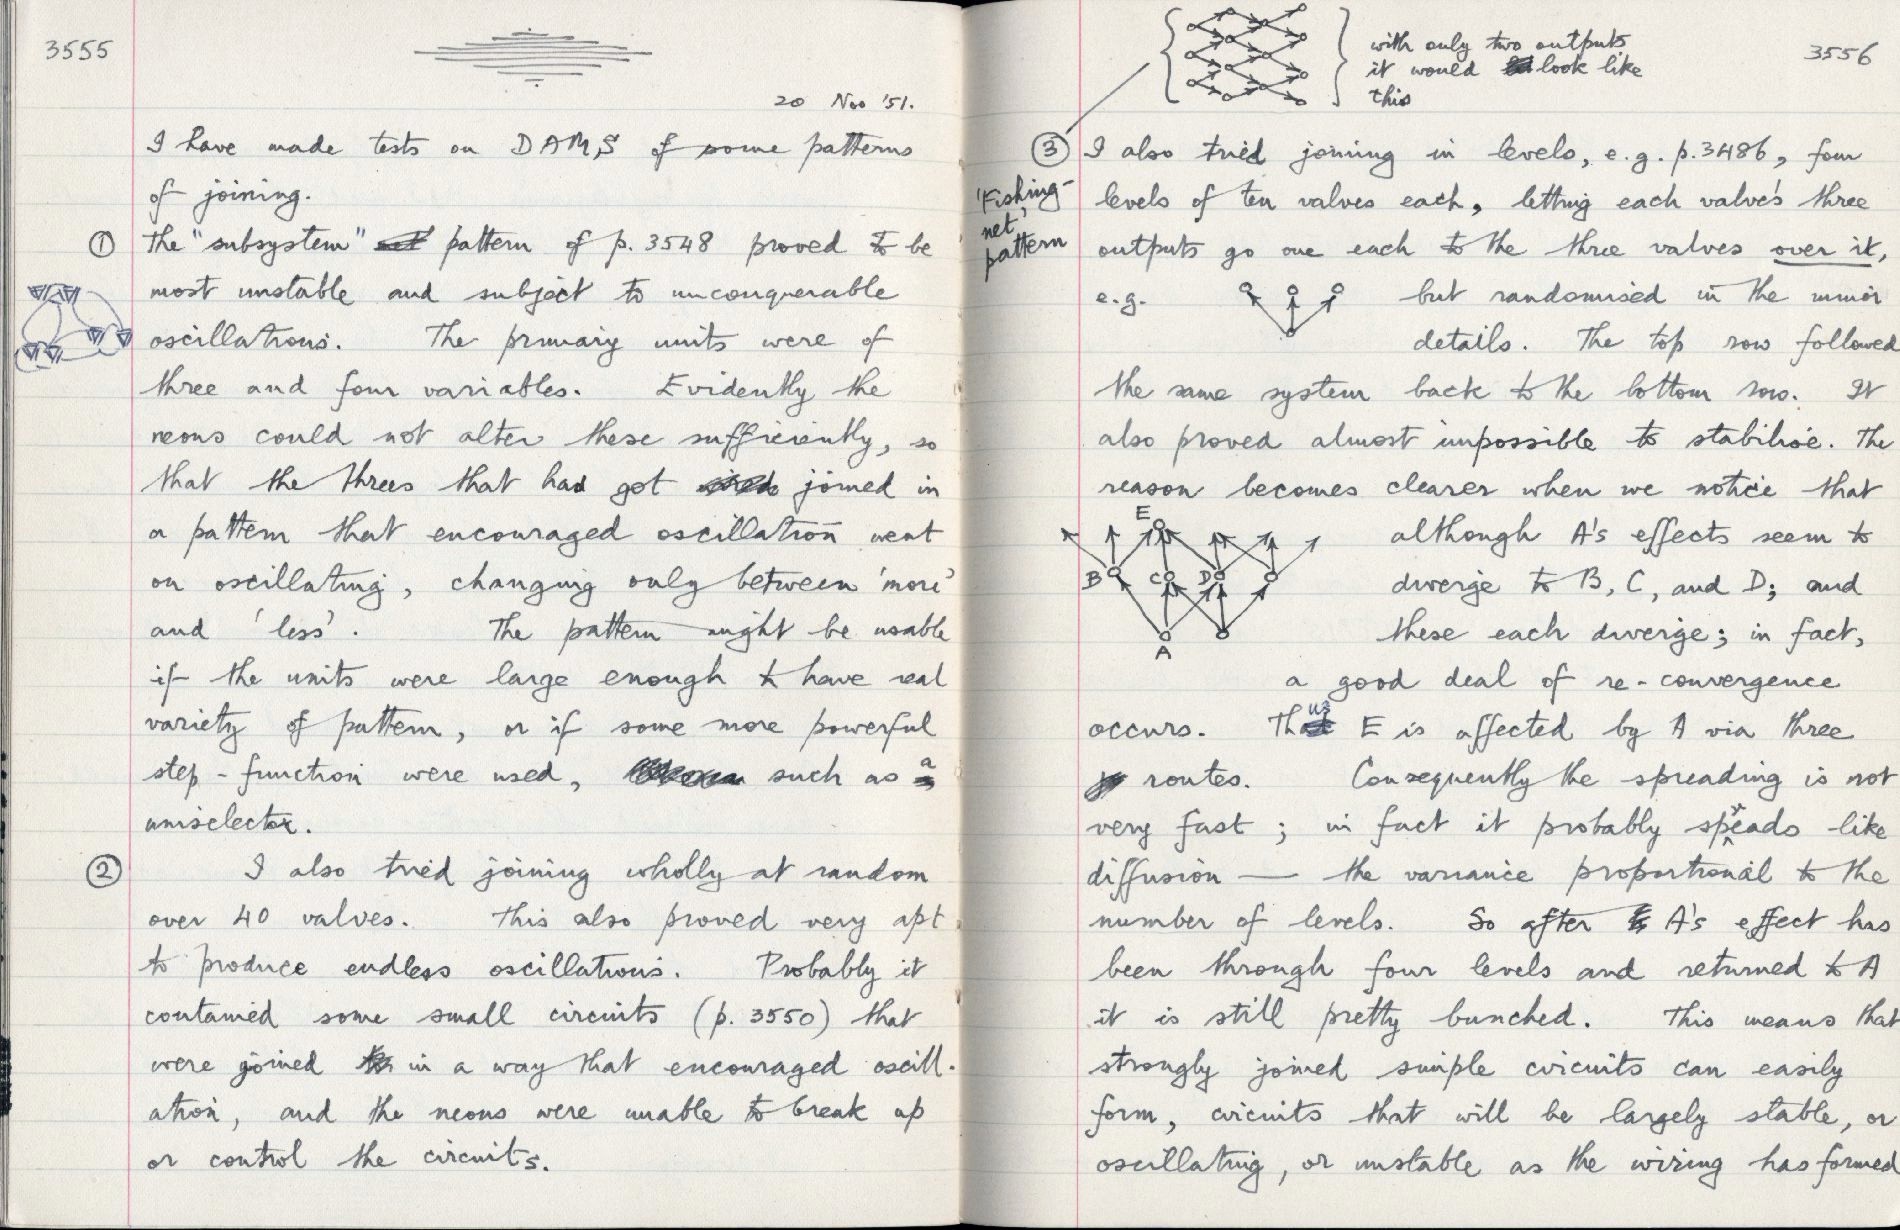 3555
20 Nov '51.
I have made tests on DAMS of some patterns
of joining.
① The "subsystem" pattern of p. 3548 proved to be
most unstable and subject to unconquerable
oscillations. The primary units were of
three and four variables. Evidently the
neons could not alter these sufficiently, so
that the threes that had got joined in
a pattern that encouraged oscillation went
on oscillating, changing only between 'more'
and 'less'. The pattern might be usable
if the units were large enough to have real
variety of pattern, or if some more powerful
step-function were used, such as a
uniselector.
② I also tried joining wholly at random
over 40 valves. This also proved very apt
to produce endless oscillations. Probably it
contained some small circuits (p. 3550) that
were joined in a way that encouraged oscill-
ation, and the neons were unable to break up
or control the circuits.
3556
with only two outputs
it would look like
this
③ I also tried joining in levels, e.g. p. 3486, four
'Fishing-
net'
pattern
levels of ten valves each, letting each valve's three
outputs go one each to the three valves over it,
e.g. but randomised in the minor
details. The top row followed
the same system back to the bottom row. It
also proved almost impossible to stabilise. The
reason becomes clearer when we notice that
E
B C D
A
although A's effects seem to
diverge to B, C, and D; and
these each diverge; in fact,
a good deal of re-convergence
occurs. Thus E is affected by A via three
routes. Consequently the spreading is not
very fast; in fact it probably spreads like
diffusion — the variance proportional to the
number of levels. So after A's effect has
been through four levels and returned to A
it is still pretty bunched. This means that
strongly joined simple circuits can easily
form, circuits that will be largely stable, or
oscillating, or unstable as the wiring has formed